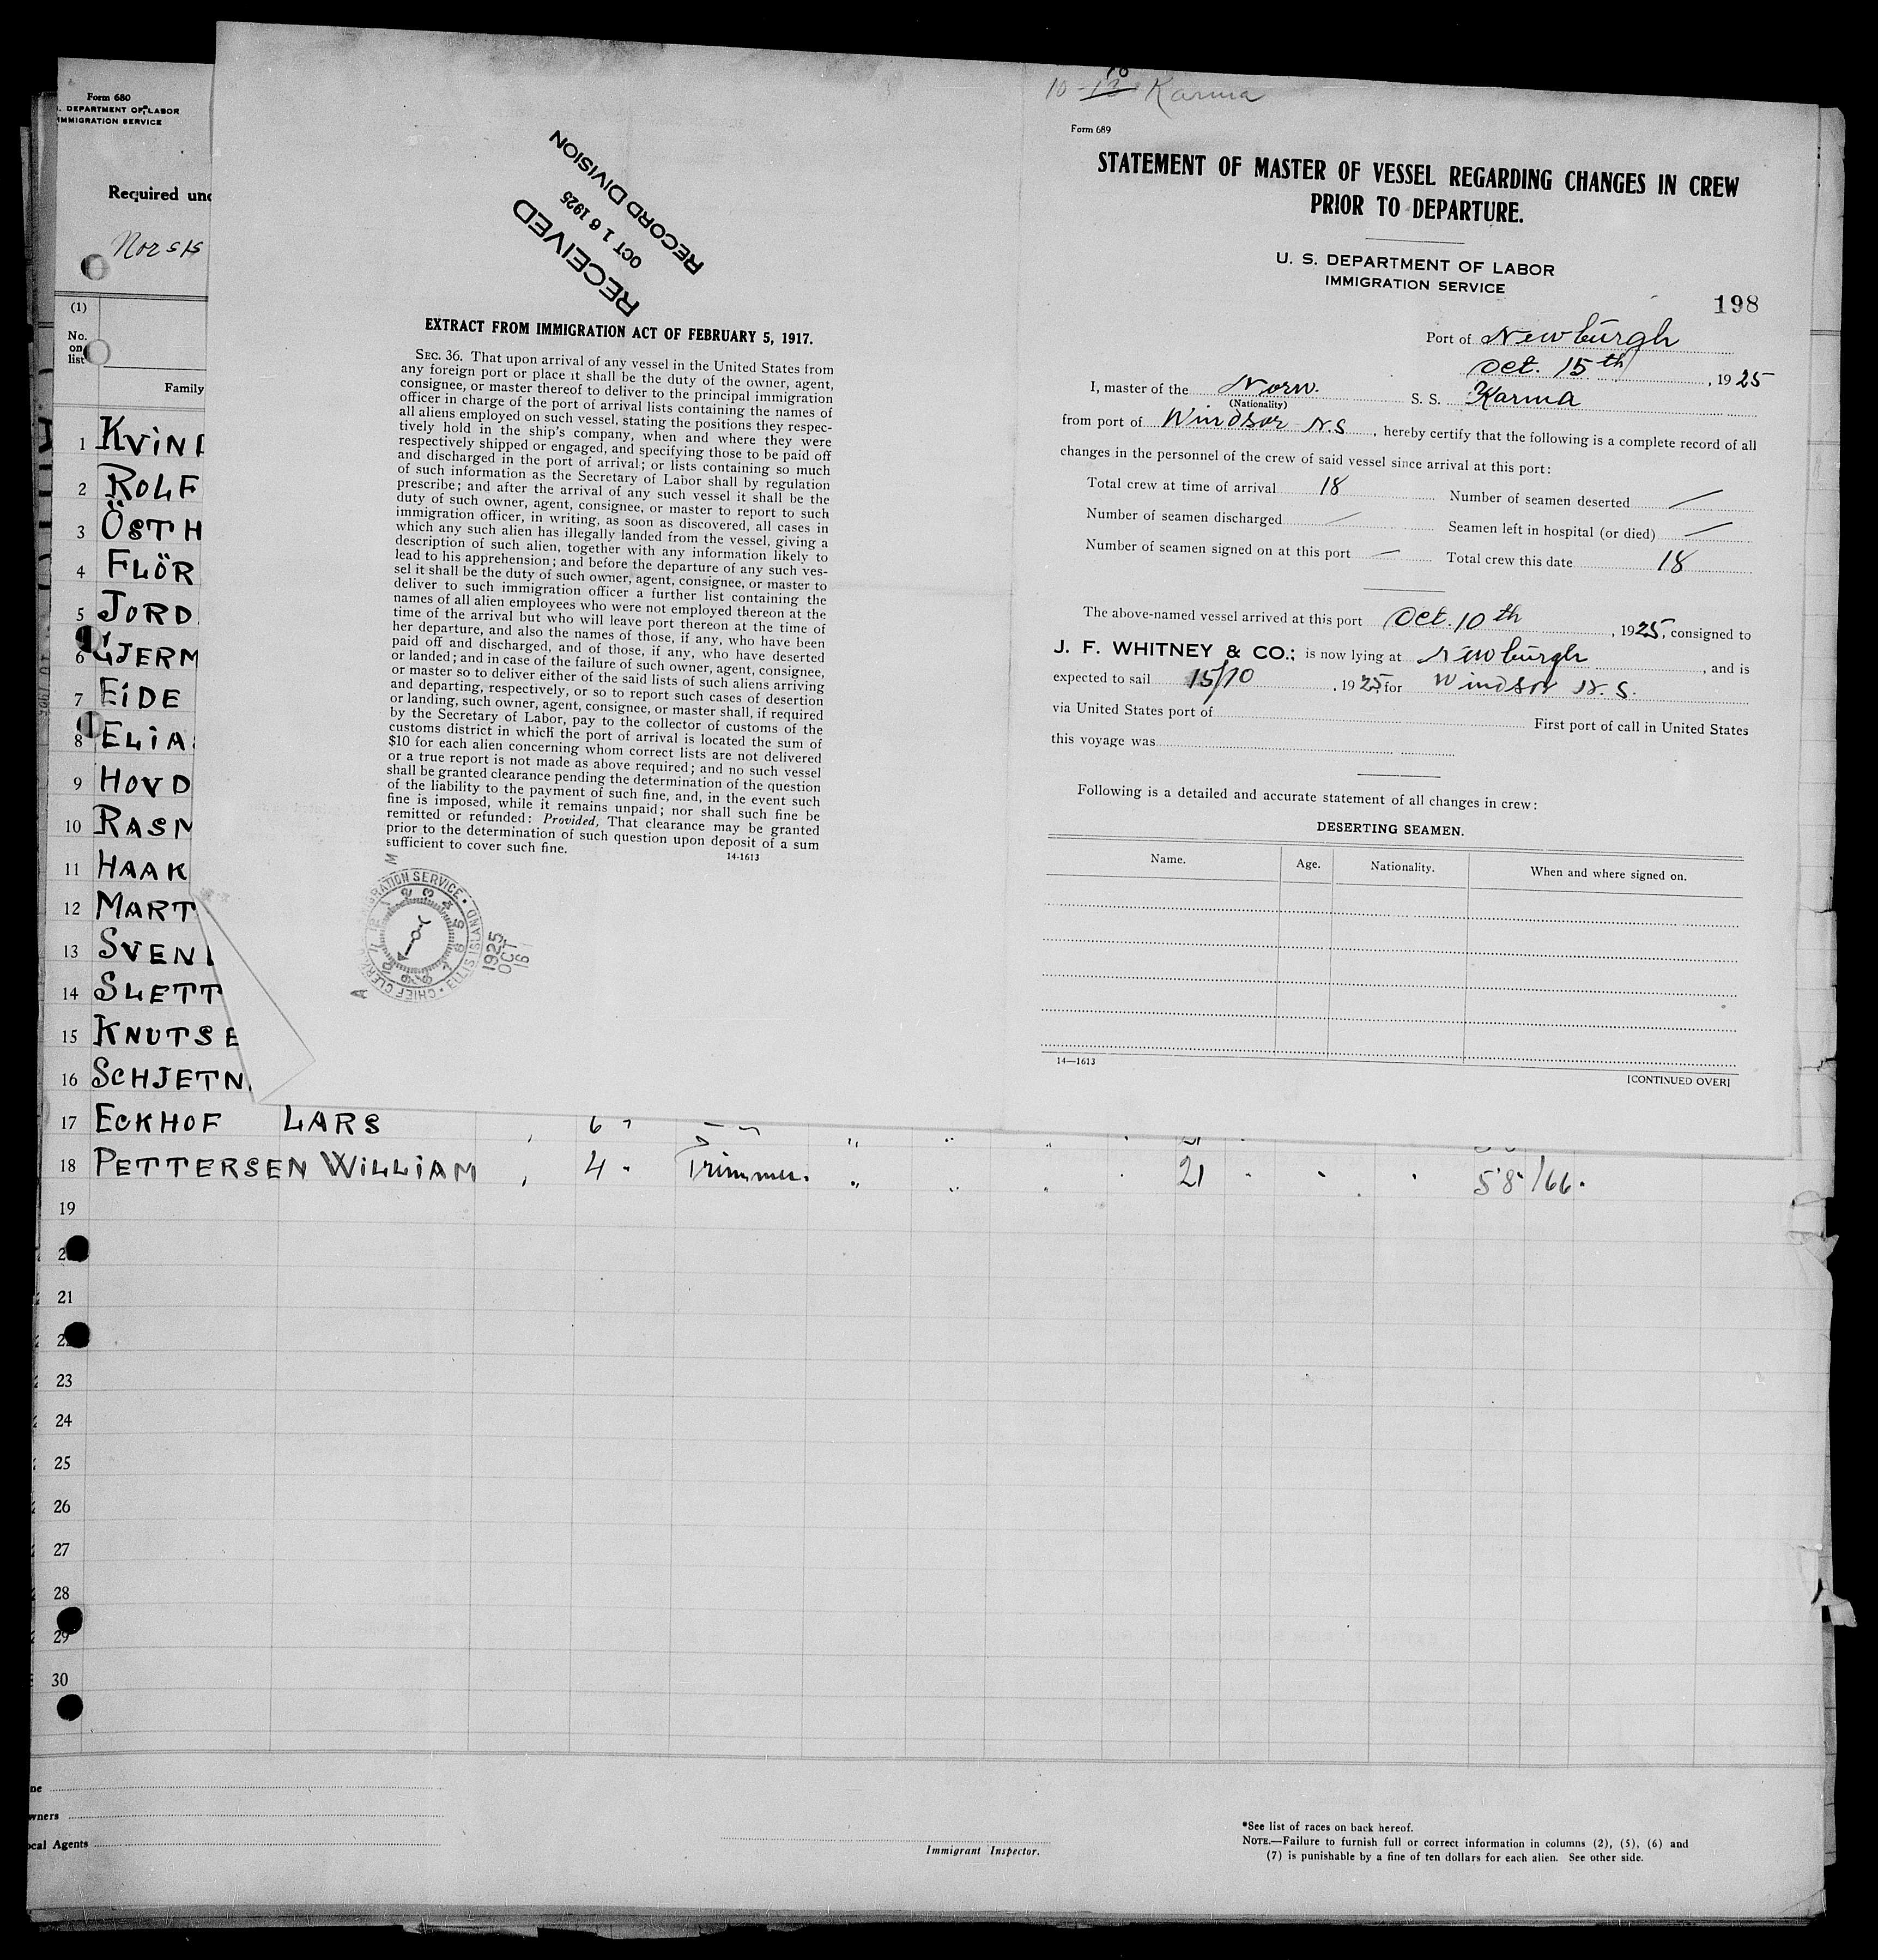 Form 680
DEPARTMENT OF LABOR
IMMIGRATION SERVICE
Required und
Norsk
(1)
No. on list
Family
1 KVIN
2 ROLF
3 ÖSTH
4 FLÖR
5 JORD
6 GJERM
7 EIDE
8 ELIA
9 HOVD
10 RASM
11 HAAK
12 MART
13 SVEN
14 SLETT
15 KNUTSE
16 SCHJETN
17 ECKHOF LARS 6 "
18 PETTERSEN WILLIAM , 4 " Trimmer. " " " " 21 " " " 5'8" 166.
19
21
23
24
25
26
27
28
29
30
ne
wners
ocal Agents
Immigrant Inspector.
*See list of races on back hereof.
NOTE.—Failure to furnish full or correct information in columns (2), (5), (6) and
(7) is punishable by a fine of ten dollars for each alien. See other side.
RECEIVED
OCT 16 1925
RECORD DIVISION
EXTRACT FROM IMMIGRATION ACT OF FEBRUARY 5, 1917.
SEC. 36. That upon arrival of any vessel in the United States from
any foreign port or place it shall be the duty of the owner, agent,
consignee, or master thereof to deliver to the principal immigration
officer in charge of the port of arrival lists containing the names of
all aliens employed on such vessel, stating the positions they respec-
tively hold in the ship's company, when and where they were
respectively shipped or engaged, and specifying those to be paid off
and discharged in the port of arrival; or lists containing so much
of such information as the Secretary of Labor shall by regulation
prescribe; and after the arrival of any such vessel it shall be the
duty of such owner, agent, consignee, or master to report to such
immigration officer, in writing, as soon as discovered, all cases in
which any such alien has illegally landed from the vessel, giving a
description of such alien, together with any information likely to
lead to his apprehension; and before the departure of any such ves-
sel it shall be the duty of such owner, agent, consignee, or master to
deliver to such immigration officer a further list containing the
names of all alien employees who were not employed thereon at the
time of the arrival but who will leave port thereon at the time of
her departure, and also the names of those, if any, who have been
paid off and discharged, and of those, if any, who have deserted
or landed; and in case of the failure of such owner, agent, consignee,
or master so to deliver either of the said lists of such aliens arriving
and departing, respectively, or so to report such cases of desertion
or landing, such owner, agent, consignee, or master shall, if required
by the Secretary of Labor, pay to the collector of customs of the
customs district in which the port of arrival is located the sum of
$10 for each alien concerning whom correct lists are not delivered
or a true report is not made as above required; and no such vessel
shall be granted clearance pending the determination of the question
of the liability to the payment of such fine, and, in the event such
fine is imposed, while it remains unpaid; nor shall such fine be
remitted or refunded: Provided, That clearance may be granted
prior to the determination of such question upon deposit of a sum
sufficient to cover such fine.
14-1613
IMMIGRATION SERVICE • ELLIS ISLAND • CHIEF CLERK
1925
OCT
16
A M
10- Karma
Form 689
STATEMENT OF MASTER OF VESSEL REGARDING CHANGES IN CREW
PRIOR TO DEPARTURE.
U. S. DEPARTMENT OF LABOR
IMMIGRATION SERVICE
198
Port of Newburgh
Oct. 15th, 1925
I, master of the Norw. S. S. Karma
(Nationality)
from port of Windsor N.S, hereby certify that the following is a complete record of all
changes in the personnel of the crew of said vessel since arrival at this port:
Total crew at time of arrival 18 Number of seamen deserted /
Number of seamen discharged / Seamen left in hospital (or died) /
Number of seamen signed on at this port — Total crew this date 18
The above-named vessel arrived at this port Oct. 10th, 1925, consigned to
J. F. WHITNEY & CO.; is now lying at Newburgh, and is
expected to sail 15/10, 1925 for Windsor N. S.
via United States port of First port of call in United States
this voyage was
Following is a detailed and accurate statement of all changes in crew:
DESERTING SEAMEN.
Name. Age. Nationality. When and where signed on.
14—1613
[CONTINUED OVER]